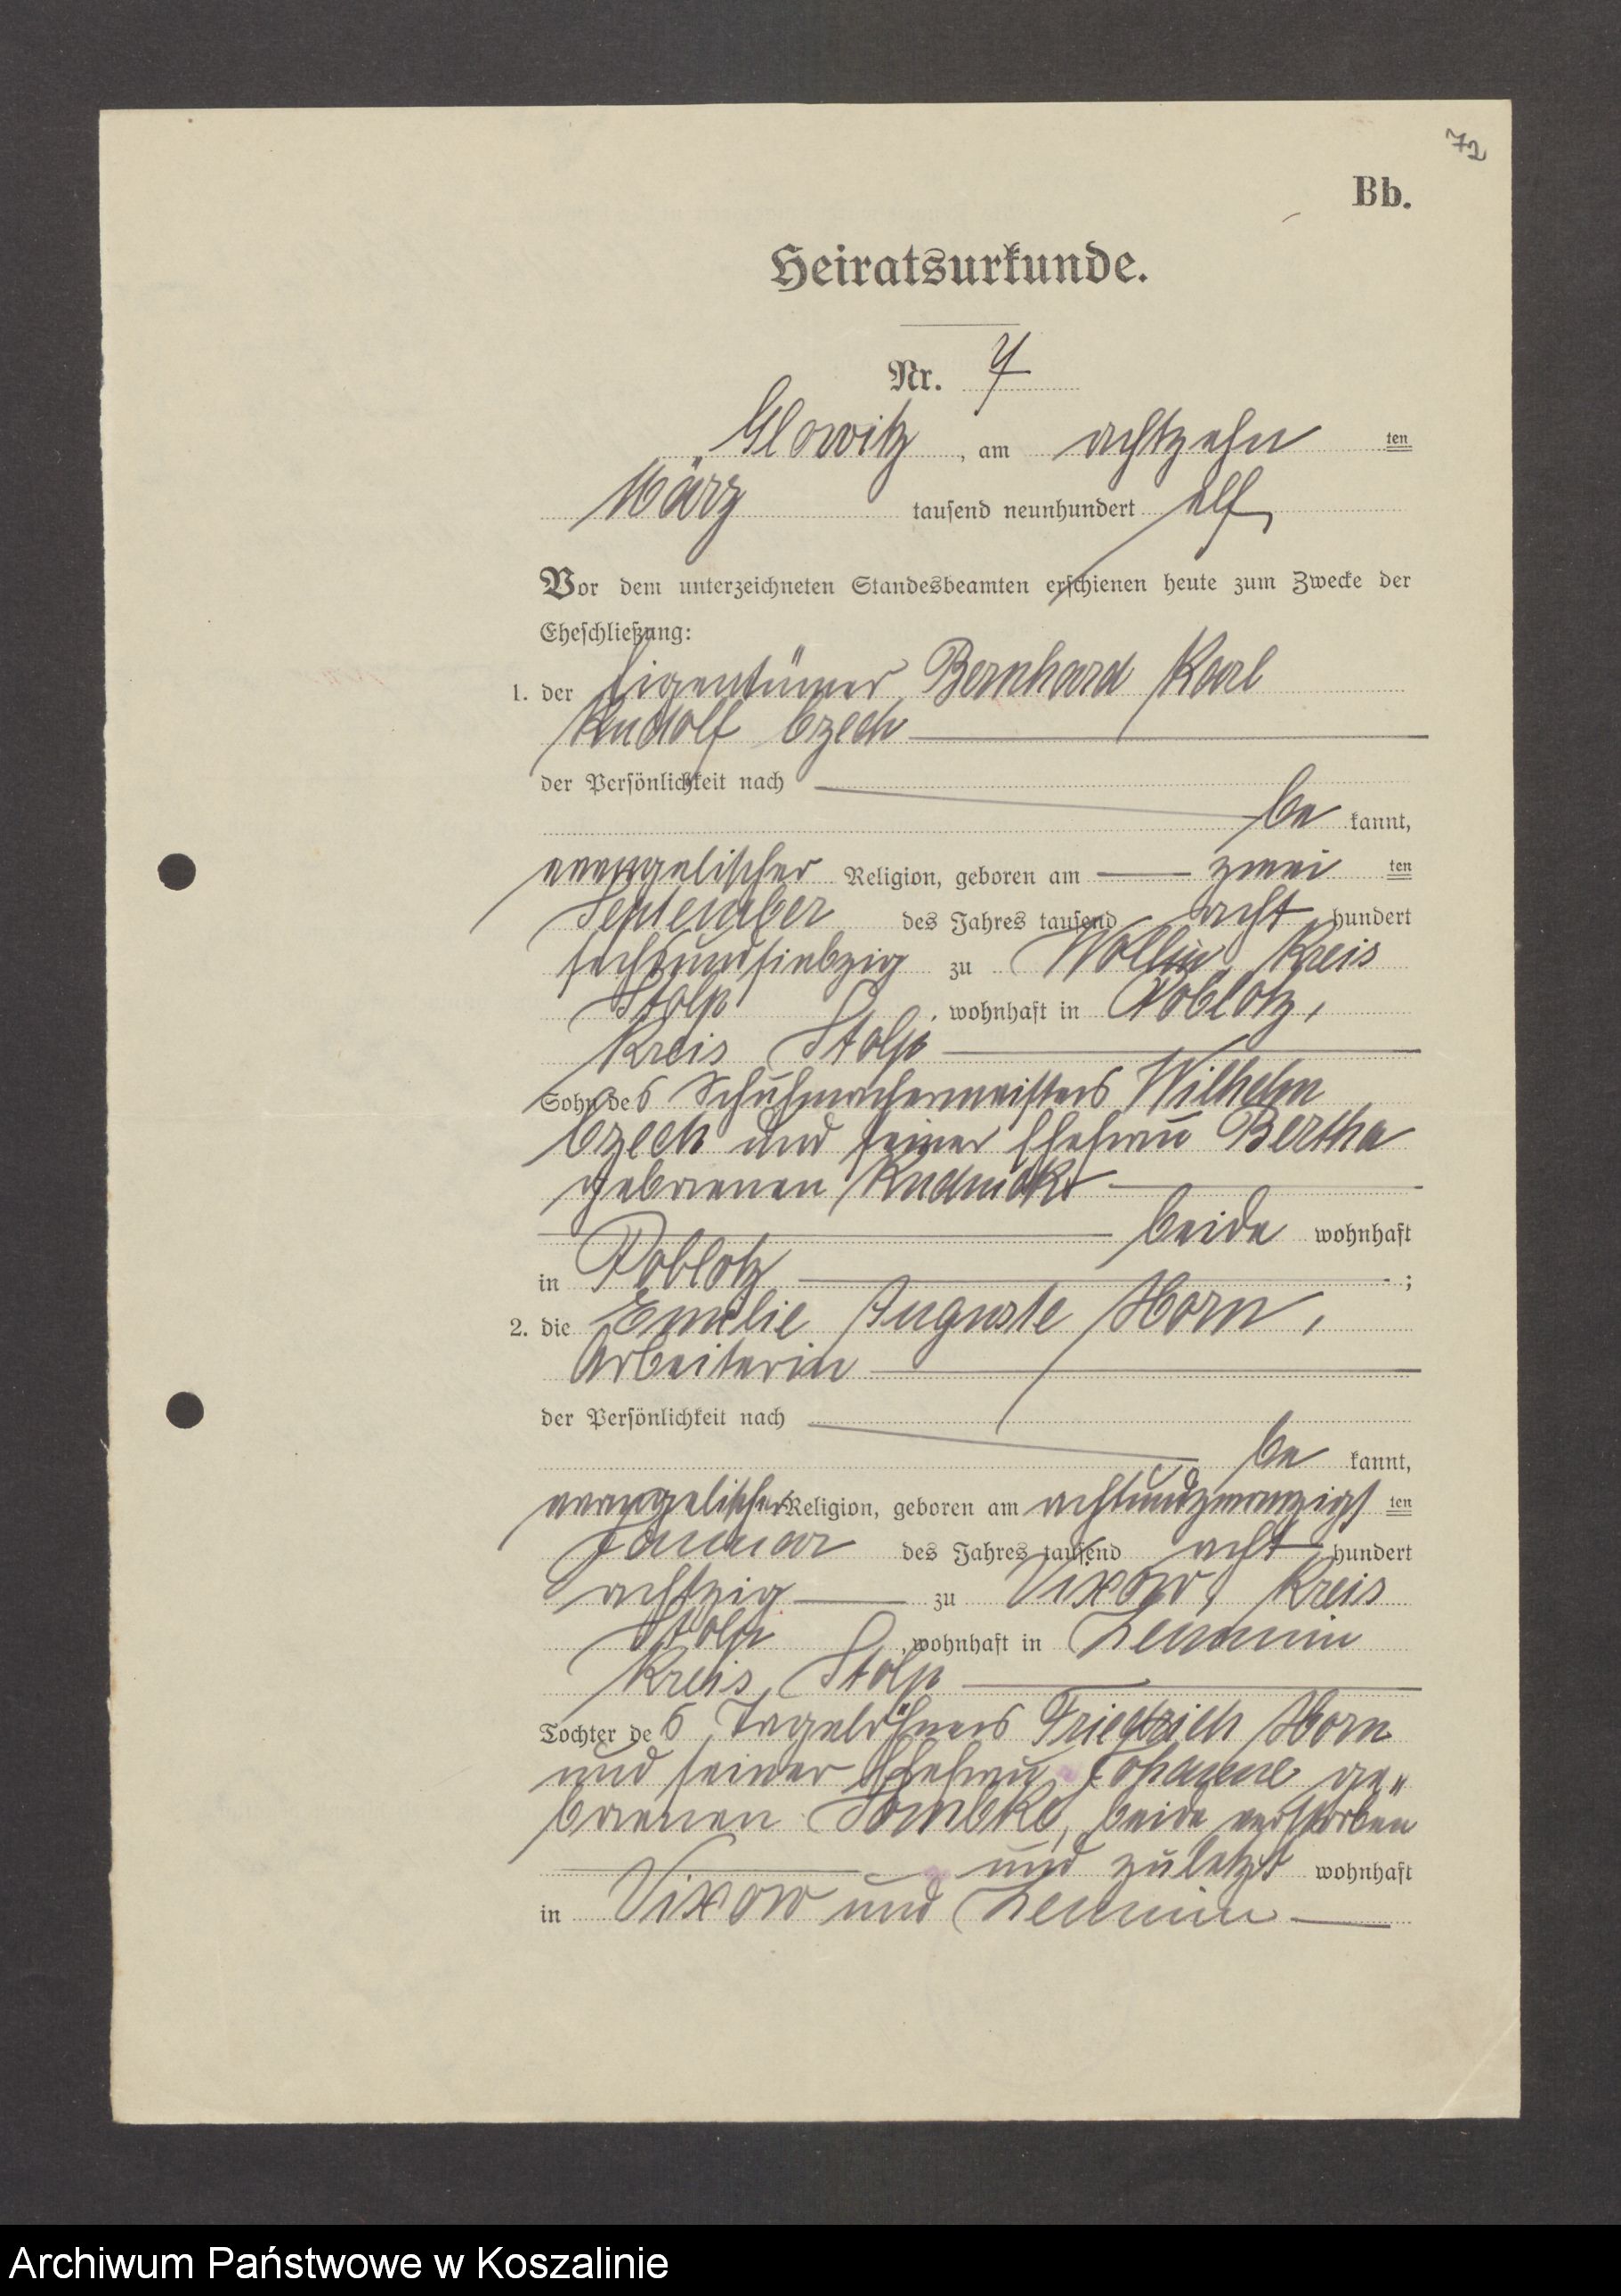 72
Bb.
Heiratsurkunde.
Nr. 7
Glowitz, am achtzehn ten
März tausend neunhundert elf
Vor dem unterzeichneten Standesbeamten erschienen heute zum Zwecke der
Eheschließung:
1. der Eigentümer Bernhard Karl
Rudolf Czech
der Persönlichkeit nach
be kannt,
evangelischer Religion, geboren am zwei ten
September des Jahres tausend acht hundert
sechsundsiebzig zu Wollin, Kreis
Stolp, wohnhaft in Poblotz,
Kreis Stolp
Sohn des Schuhmachermeisters Wilhelm
Czech und seiner Ehefrau Bertha
geborenen
beide wohnhaft
in Poblotz;
2. die Emilie Auguste Horn,
Arbeiterin
der Persönlichkeit nach
be kannt,
evangelischer Religion, geboren am achtundzwanzigs ten
Januar des Jahres tausend acht hundert
achtzig zu Vixow, Kreis
Stolp, wohnhaft in Zemmin
Kreis Stolp
Tochter des Tagelöhners Friedrich Horn
und seiner Ehefrau Johanne ge„
borenen beide verstorben
und zuletzt wohnhaft
in Vixow und Zemmin
Archiwum Państwowe w Koszalinie